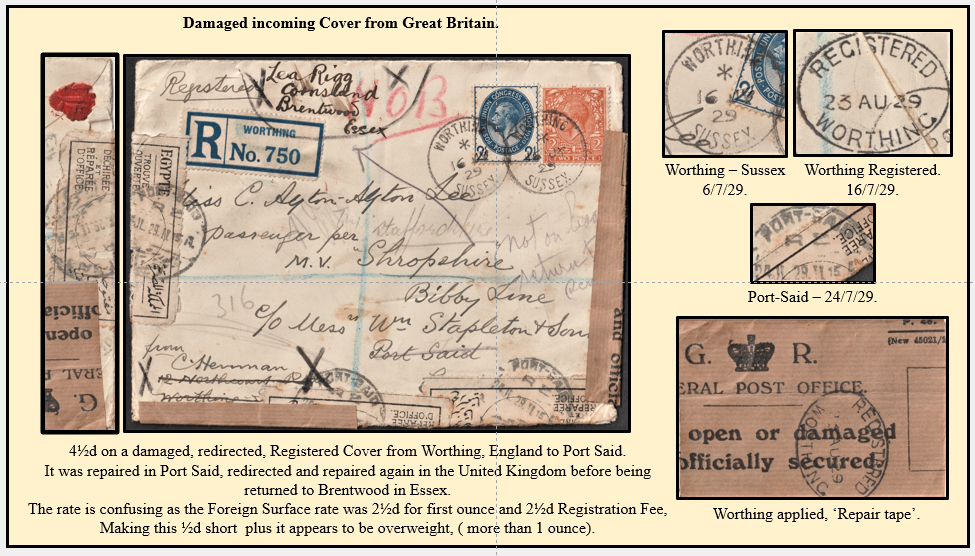 Damaged incoming Cover from Great Britain.
Registered
Lea Rigg
Coonsland
Brentwood
Essex
R
WORTHING
No. 750
WORTHING
16
29
SUSSEX
WORTHING
SUSSEX
Miss C. Ayton-Ayton Lee
passenger per
M.V. "Shropshire"
Bibby Line
c/o Mess" Wm Stapleton & Son
Port Said
316
not on board
return to
from
C. Henman
Worthing
EGYPTE
TROUVÉ
OUVERTE
DÉCHIRÉE
ET
RÉPARÉE
D'OFFICE
G.
open
offici
and offici
PORT-SAID
D'OFFICE.
WORTHING
*
16
29
SUSSEX
2½
POSTAL UN
REGISTERED
23 AU 29
WORTHING
Worthing – Sussex
6/7/29.
Worthing Registered.
16/7/29.
PORT-SA
PARÉE
OFFICE.
Port-Said – 24/7/29.
G. R.
(New 45021/1
ERAL POST OFFICE.
open or damaged
officially secured
REGISTERED
WORTHING
Worthing applied, 'Repair tape'.
4½d on a damaged, redirected, Registered Cover from Worthing, England to Port Said.
It was repaired in Port Said, redirected and repaired again in the United Kingdom before being
returned to Brentwood in Essex.
The rate is confusing as the Foreign Surface rate was 2½d for first ounce and 2½d Registration Fee,
Making this ½d short plus it appears to be overweight, ( more than 1 ounce).